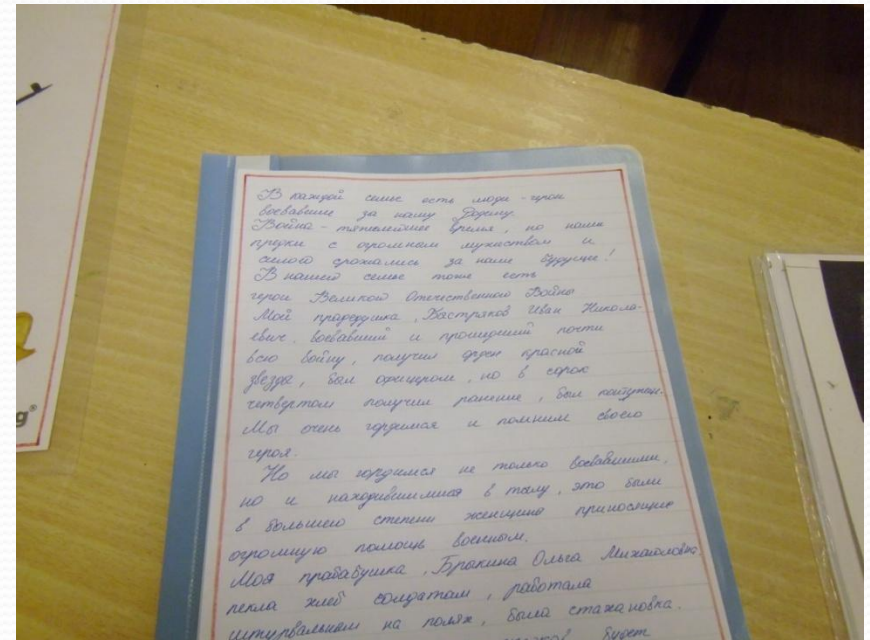 В каждой семье есть люди - герои
воевавшие за нашу Родину.
Война - тяжелейшее время, но наши
предки с огромным мужеством и
силой сражались за наше будущее!
В нашей семье тоже есть
герои Великой Отечественной Войны
Мой прадедушка, Хастряков Иван Никола-
евич, воевавший и прошедший почти
всю войну, получил орден красной
звезды, был офицером, но в сорок
четвертом получил ранение, был контужен.
Мы очень гордимся и помним своего
героя.
Но мы гордимся не только воевавшими,
но и находившимися в тылу, это были
в большего степени женщины приносящие
огромную помощь военным.
Моя прабабушка, Бракина Ольга Михайловна
пекла хлеб солдатам, работала
штурвальном на полях, была стахановка.
будет
g®